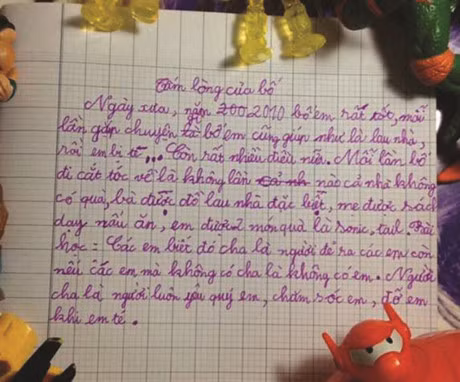 Tấm lòng của bố
Ngày xưa, năm 200 2010 bố em rất tốt, mỗi
lần gặp chuyện là bố em cũng giúp như là lau nhà,
rồi em bị tê,... Còn rất nhiều điều nữa. Mỗi lần bố
đi cắt tóc về là không lần cả nh nào cả nhà không
có quà, bà được đồ lau nhà đặc biệt, mẹ được sách
dạy nấu ăn, em được 2 món quà là sonic, tail. Bài
học : Các em biết đó cha là người đẻ ra các em còn
nếu các em mà không có cha là không có em. Người
cha là người luôn yêu quý em, chăm sóc em, đỡ em
khi em tê.